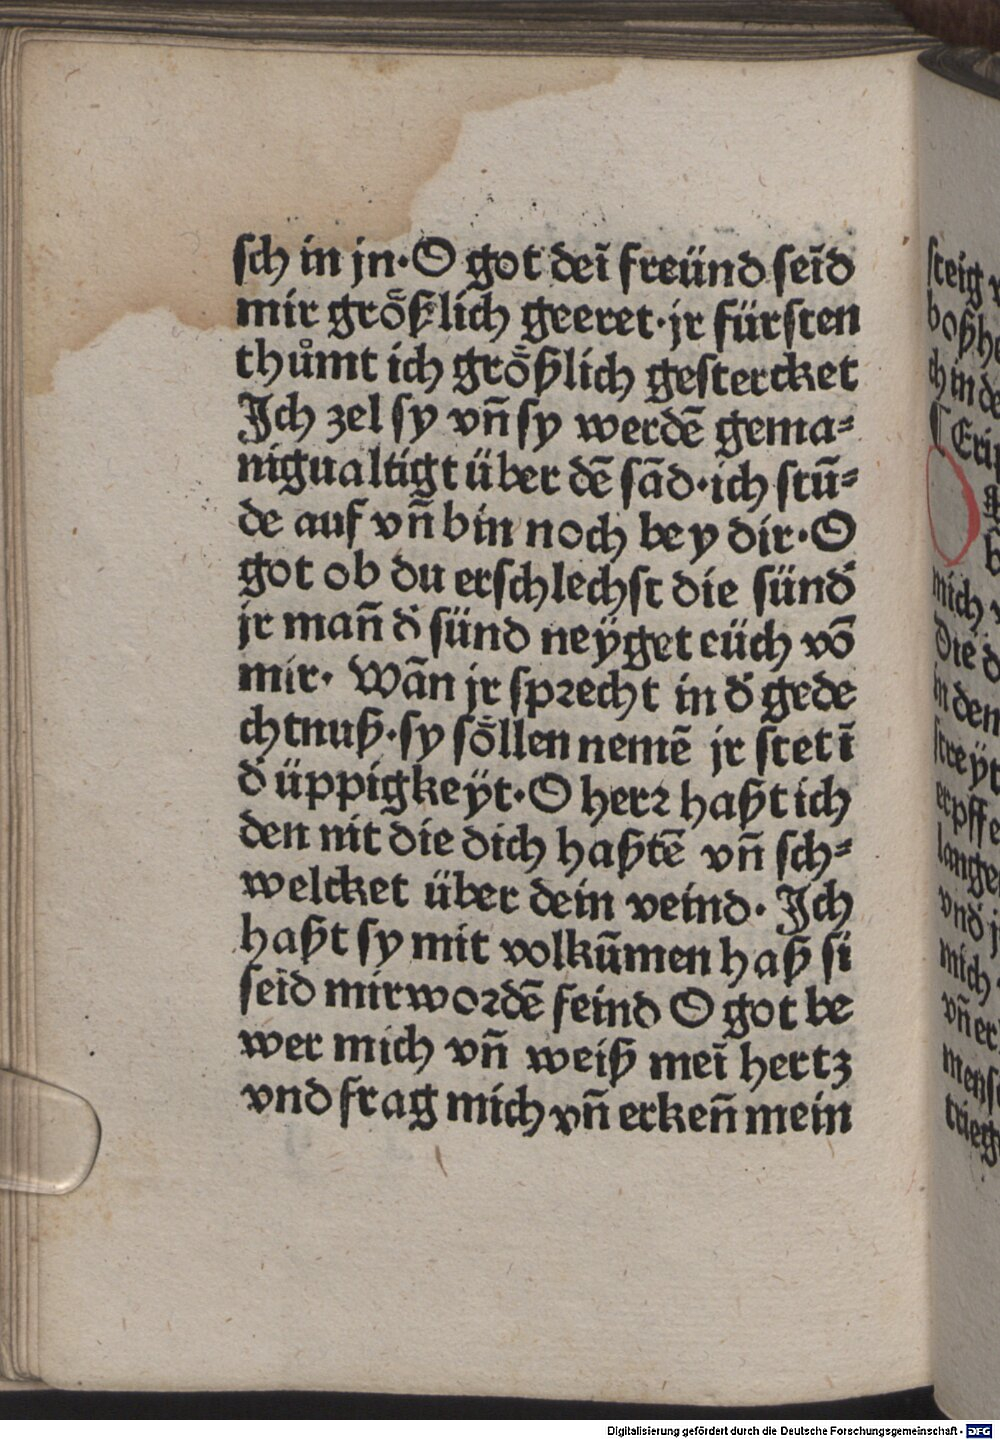 ſch in jn·O got deī freünd ſeīd
mir grö̈ßlich geeret·jr fürſten
thůmt ich grö̈ßlich geſtercket
Jch zel ſy vñ ſy werdē gema⸗
nigualtigt über dē ſād·ich ſtū⸗
de auf vñ bin noch bey dir·O
got ob du erſchlechſt die ſünd̓
jr man̄ d̓ ſünd neÿget eüch vō
mir· Wān jr ſpꝛecht in d̓ gede
chtnuß·ſy ſöllen nemē jr ſtet ī
d̓ üppigkeÿt·O herꝛ haßt ich
den nit die dich haßtē vñ ſch⸗
welcket über dein veind· Jch
haßt ſy mit volkūmen haß ſi
ſeīd mir woꝛdē feind O got be
wer mich vñ weiß meī hertz
vnd frag mich vñ erken̄ mein
ſteig
boßh
ch in de
¶ Eri
mich
Die d
in den
ſtreÿt
erpffe
lange
vnd j
mich
vñ er
menſ
trieg
Digitalisierung gefördert durch die Deutsche Forschungsgemeinschaft - DFG